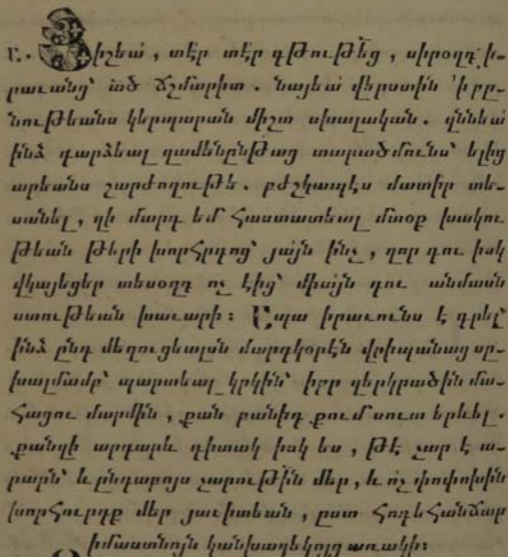 բ. Յիշեա՛, տէր տէր գթութեց, սիրօղդ ի-
րաւանց՝ ած ճշմարիտ. նայեա՛ վերստին 'ի բը-
նութեանս կերպարան միշտ սխալական. քննեա՛
ինձ դարձեալ զամենընթաց տարածմունս՝ ելից
արեանս շարժողութե. բժշկապէս մատիր տե-
սանել, զի մարդ եմ հաստատեալ մտօք խակու
թեան թերի խորհրդոց՝ յայն ինչ, զոր դու իսկ
վկայեցեր տեսօղդ ոչ էից՝ միայն դու անմասն
ստութեան խաւարի: Ապա իրաւունս է գրել՝
ինձ ընդ մեղուցելայն մարդկօրէն վրիպանաց սը-
խալմամբ՝ պարտեալ կրկին՝ իբր զերկրածին մա-
հացու մարմին, քան բանիդ քում սուտ երևել.
քանզի արդարև գիտակ իսկ ես, թէ չար է ա-
րարն՝ և ընդաբոյս չարութիւն մեր, և ոչ փոփոխին
խորհուրդք մեր յաւիտեան, ըստ հոգեհանճար
իմաստնոյն կանխադեկոյց առակի: